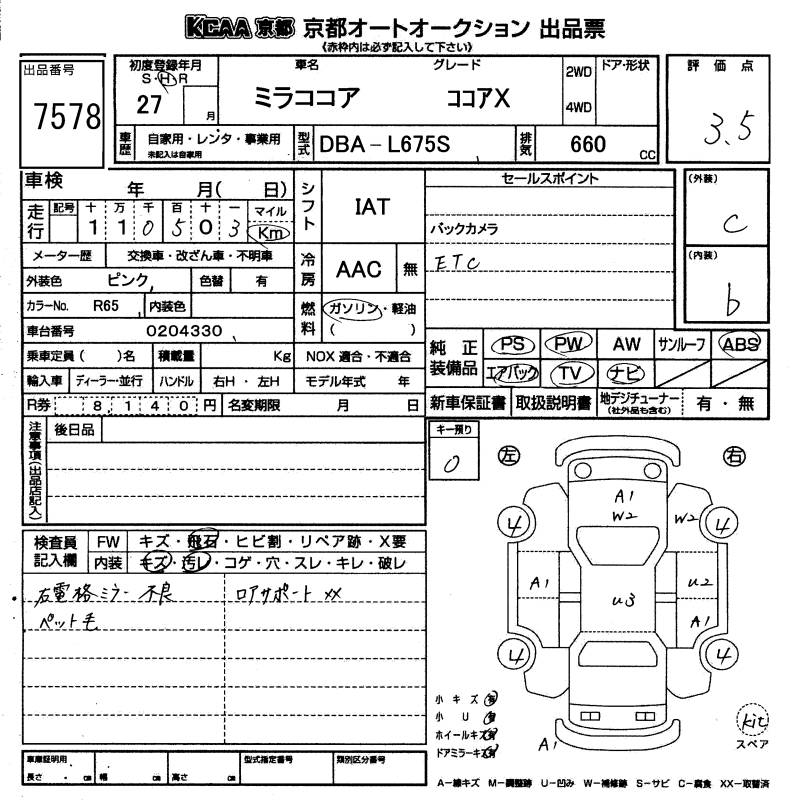 KCAA 京都 京都オートオークション 出品票
《赤枠内は必ず記入して下さい》
出品番号 7578
初度登録年月 S・H・R 27 月
車名 ミラココア
グレード ココアX
2WD 4WD
ドア・形状
評価点 3.5
車歴 自家用・レンタ・事業用 未記入は自家用
型式 DBA－L675S
排気 660 CC
車検 年 月( 日)
シフト IAT
セールスポイント
(外装) C
走行 記号 十 万 千 百 十 一 マイル
1 1 0 5 0 3 Km
バックカメラ
メーター歴 交換車・改ざん車・不明車
冷房 AAC 無
ETC
(内装) b
外装色 ピンク 色替 有
カラーNo. R65 内装色
燃料 ガソリン・軽油 ( )
車台番号 0204330
純正装備品 PS PW AW サンルーフ ABS
乗車定員( )名 積載量 Kg NOX 適合・不適合
エアバック TV ナビ
輸入車 ディーラー・並行 ハンドル 右H・左H モデル年式 年
R券 8,140円 名変期限 月 日
新車保証書 取扱説明書 地デジチューナー(社外品も含む) 有・無
注意事項(出品店記入) 後日品
キー預り 0
左 右
A1
W2 W2
4 4
A1 U2
U3
A1
4 4
検査員記入欄 FW キズ・飛石・ヒビ割・リペア跡・X要
内装 キズ・汚レ・コゲ・穴・スレ・キレ・破レ
右電格ミラー 不良 ロアサポート XX
ペット毛
小キズ 有
小U 有
ホイールキズ 有
ドアミラーキズ 有
A1
kit
スペア
車庫証明用 長さ cm 幅 cm 高さ cm
型式指定番号 類別区分番号
A－線キズ M－調整跡 U－凹み W－補修跡 S－サビ C－腐食 XX－取替済